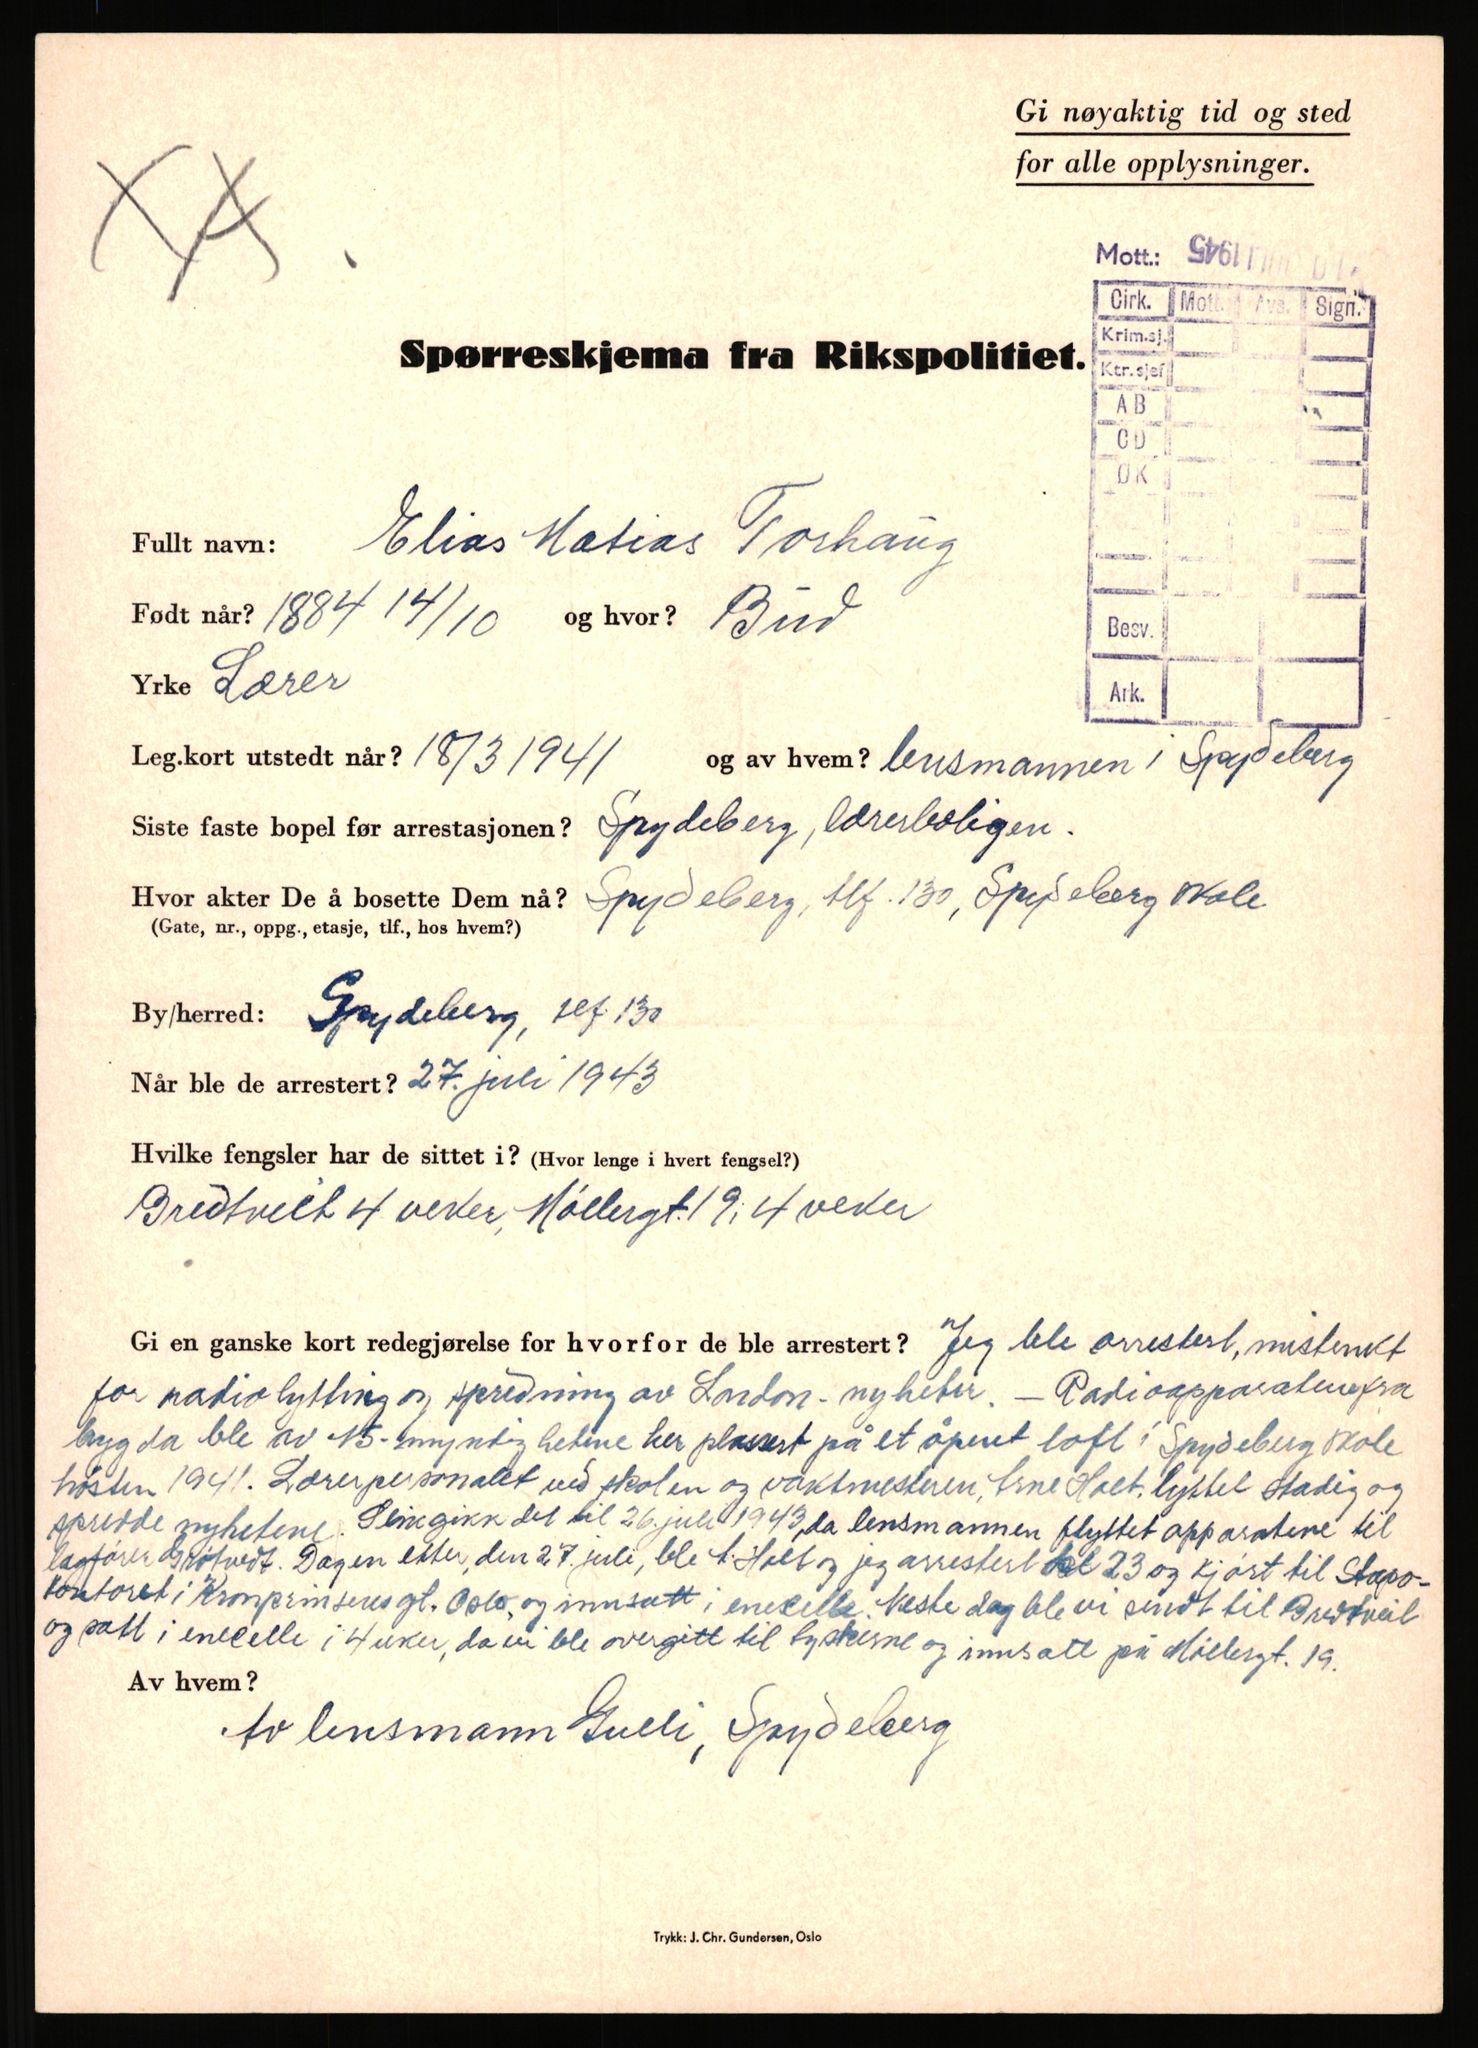 Gi nøyaktig tid og sted
for alle opplysninger.
Mott.: 1945
Cirk. Mott. Avs. Sign.
Krim.sj.
Ktr.sjef
AB
CD
ØK
Besv.
Ark.
Spørreskjema fra Rikspolitiet.
Fullt navn: Elias Matias Torhaug
Født når? 1884 14/10 og hvor? Bud
Yrke Lærer
Leg.kort utstedt når? 18/3 1941 og av hvem? lensmannen i Spydeberg
Siste faste bopel før arrestasjonen? Spydeberg, lærerboligen.
Hvor akter De å bosette Dem nå? Spydeberg, tlf. 130, Spydeberg skole
(Gate, nr., oppg., etasje, tlf., hos hvem?)
By/herred: Spydeberg, tlf 130
Når ble de arrestert? 27. juli 1943
Hvilke fengsler har de sittet i? (Hvor lenge i hvert fengsel?)
Bredtveit 4 veker, Møllergt. 19; 4 veker
Gi en ganske kort redegjørelse for hvorfor de ble arrestert? "Jeg ble arrestert, mistenkt
for radiolytting og spredning av London-nyheter. — Radioapparatene fra
bygda ble av NS-myndighetene her plassert på et åpent loft i Spydeberg skole
høsten 1941. Lærerpersonalet ved skolen og vaktmesteren, Arne Holt, lyttet stadig og
spredde nyhetene. Slik gikk det til 26. juli 1943, da lensmannen flyttet apparatene til
lagfører Grøtvedt. Dagen etter, den 27. juli, ble A. Holt og jeg arrestert kl 23 og kjørt til Stapo-
kontoret i Kronprinsensgt. Oslo, og innsatt i enecelle. Neste dag ble vi sendt til Bredtveit
og satt i enecelle i 4 uker, da vi ble overgitt til tyskerne og innsatt på Møllergt. 19.
Av hvem?
Av lensmann Gulli, Spydeberg
Trykk: J. Chr. Gundersen, Oslo